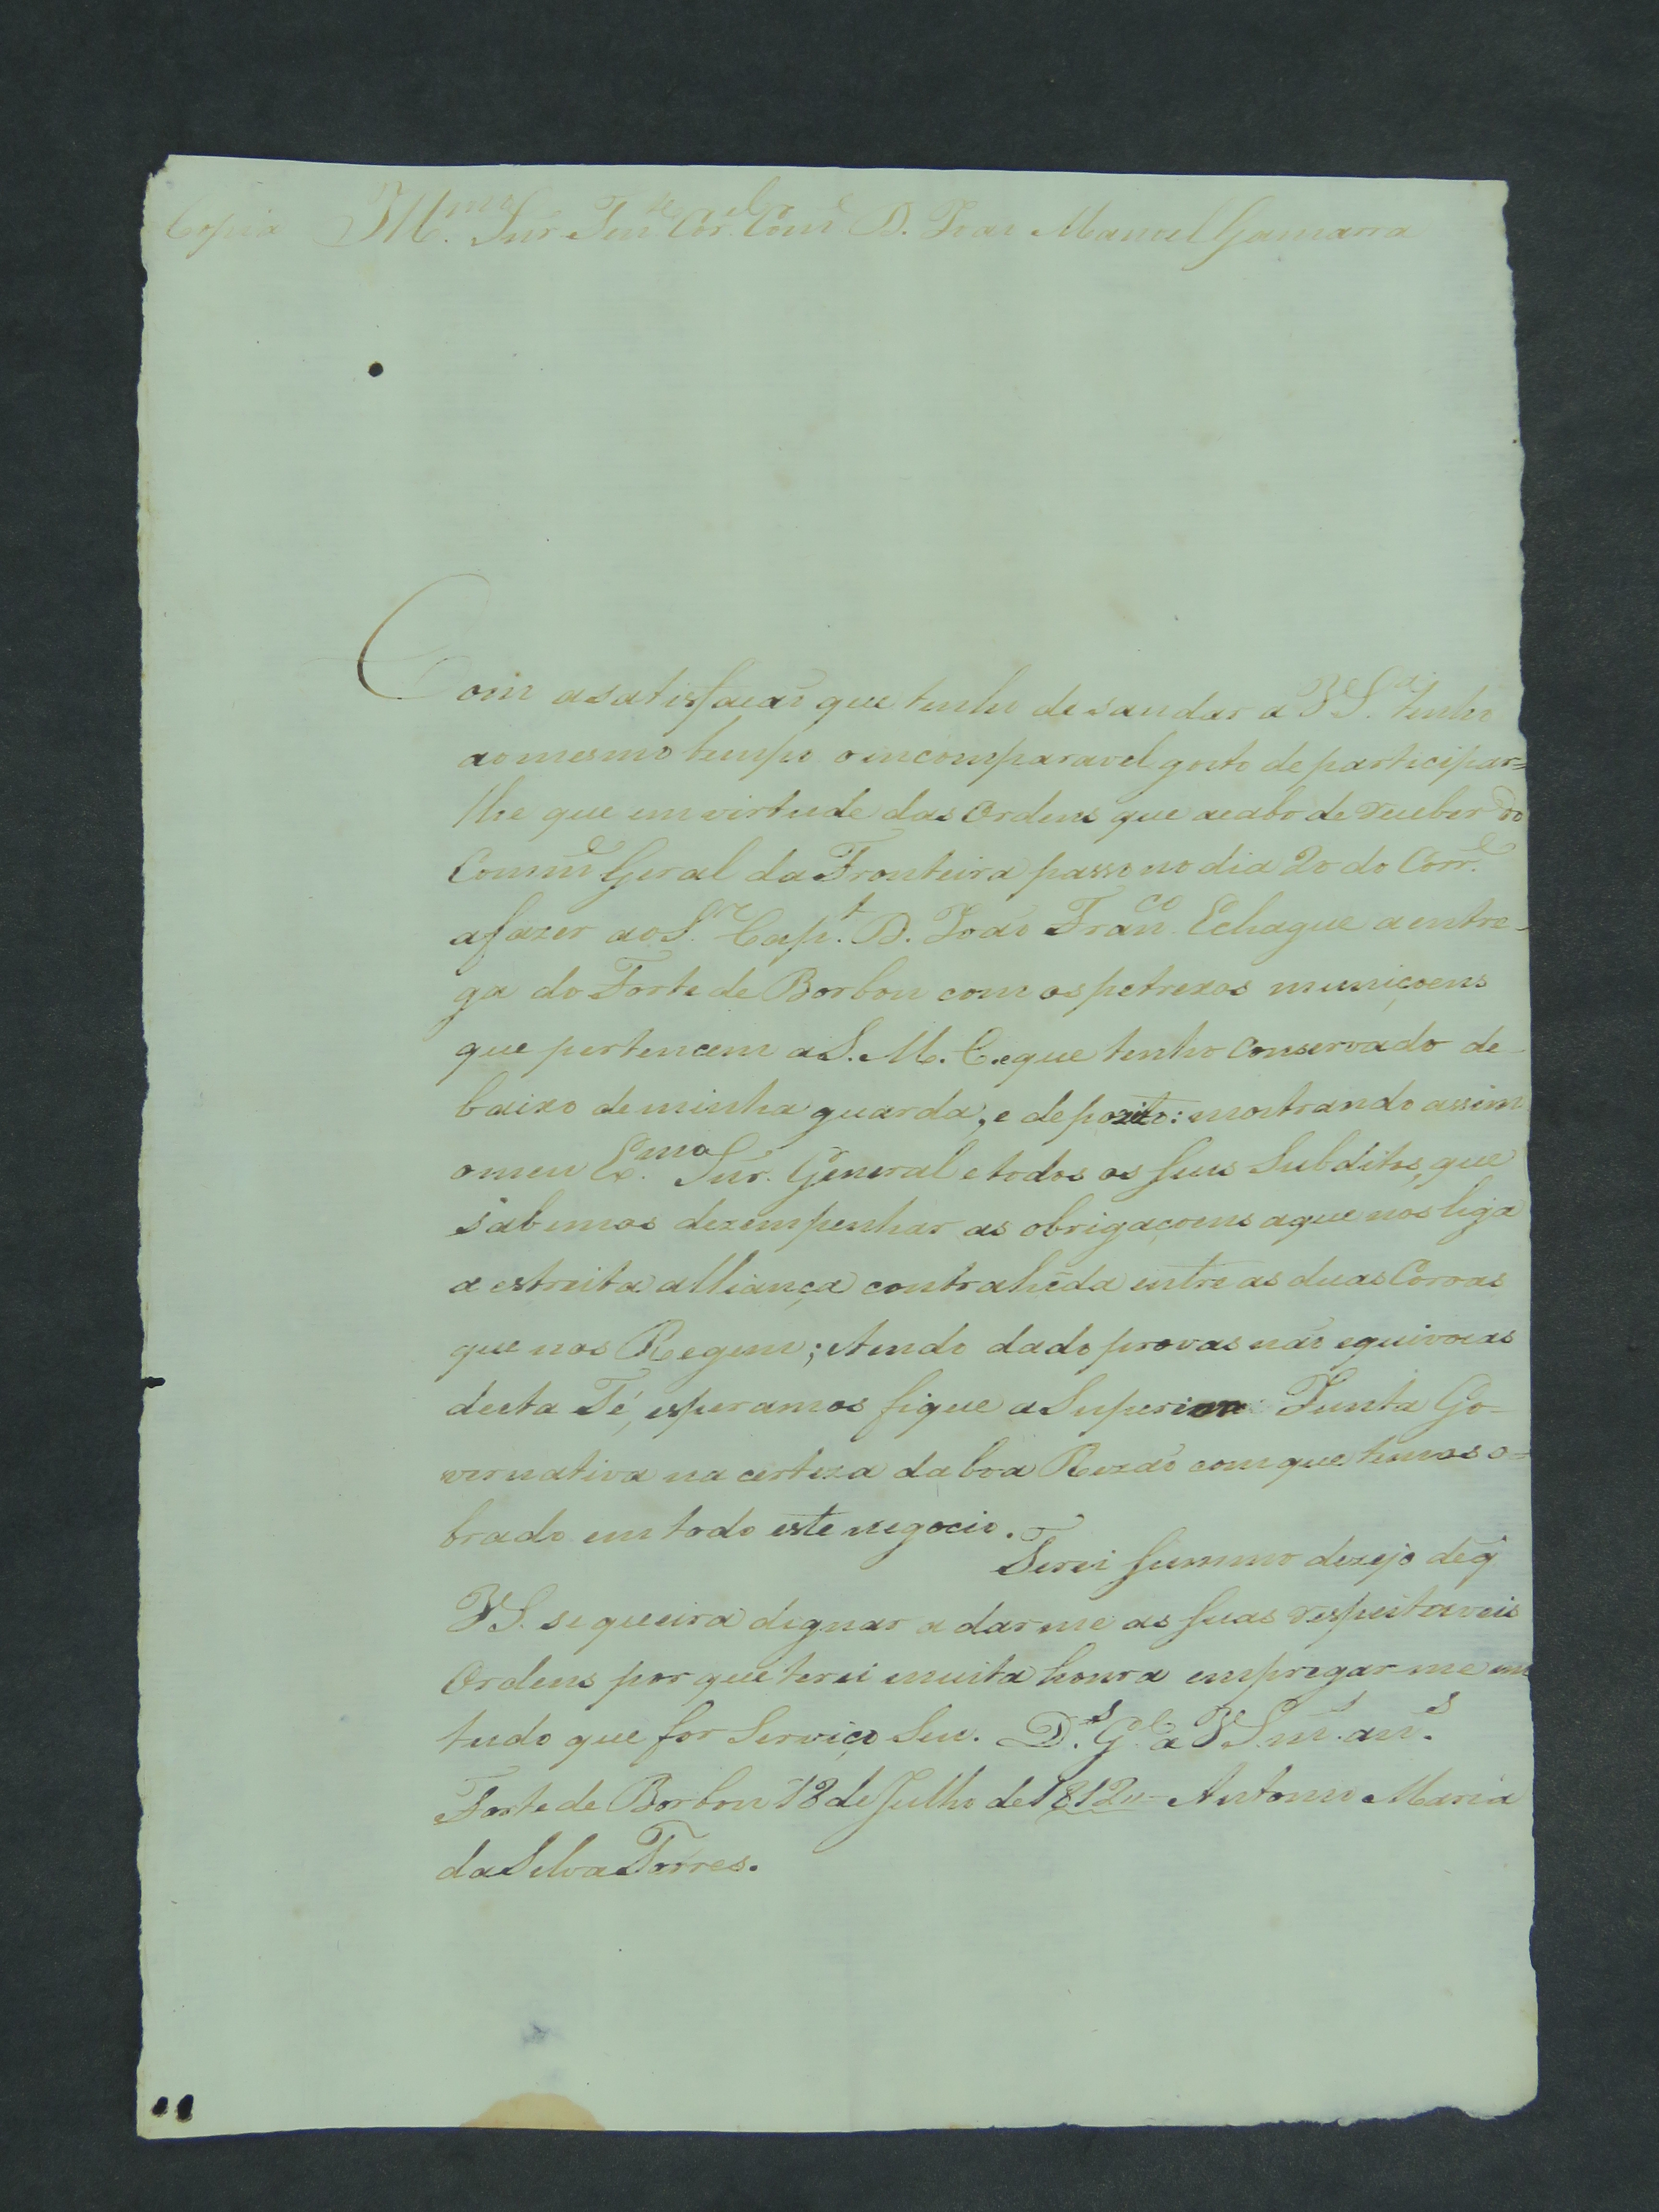 Copia Ill.mo Snr. Ten.te Cor.el Com.e D. Joaõ Manoel Gamarra
Com a satisfacaõ que tenho de saudar a VS.a tenho
ao mesmo tempo o incomparavel gosto de participar=
lhe que em virtude das Ordens que acabo de receber do
Comm.e Geral da Fronteira passo no dia 20 do Corr.e
a fazer ao S.r Cap.t D. Joaõ Fran.co Echague a entre-
ga do Forte de Borbon com os petrexos muniçoens
que pertencem a S. M. C. e que tenho Conservado de
baixo de minha guarda, e depozito: mostrando assim
o meu Ex.mo Snr. General e todos os seus Subditos, que
sabemos dezempenhar as obrigaçoens a que nos liga
a estreita alliança contrahida entre as duas Coroas
que nos Regem; e tendo dado provas naõ equivocas
desta Fé, esperamos fique a Superior Junta Go=
vernativa na certeza da boa Rezaõ com que temos o=
brado em todo este negocio.
Terei summo dezejo de q̃
VS. se queira dignar a darme as suas respeitaveis
Ordens por que terei muita honra empregar me em
tudo que for Serviço Seu. D.s G.e a VS. m.s an.s
Forte de Borbon 18 de Julho de 1812 = Antonio Maria
da Silva Torres.